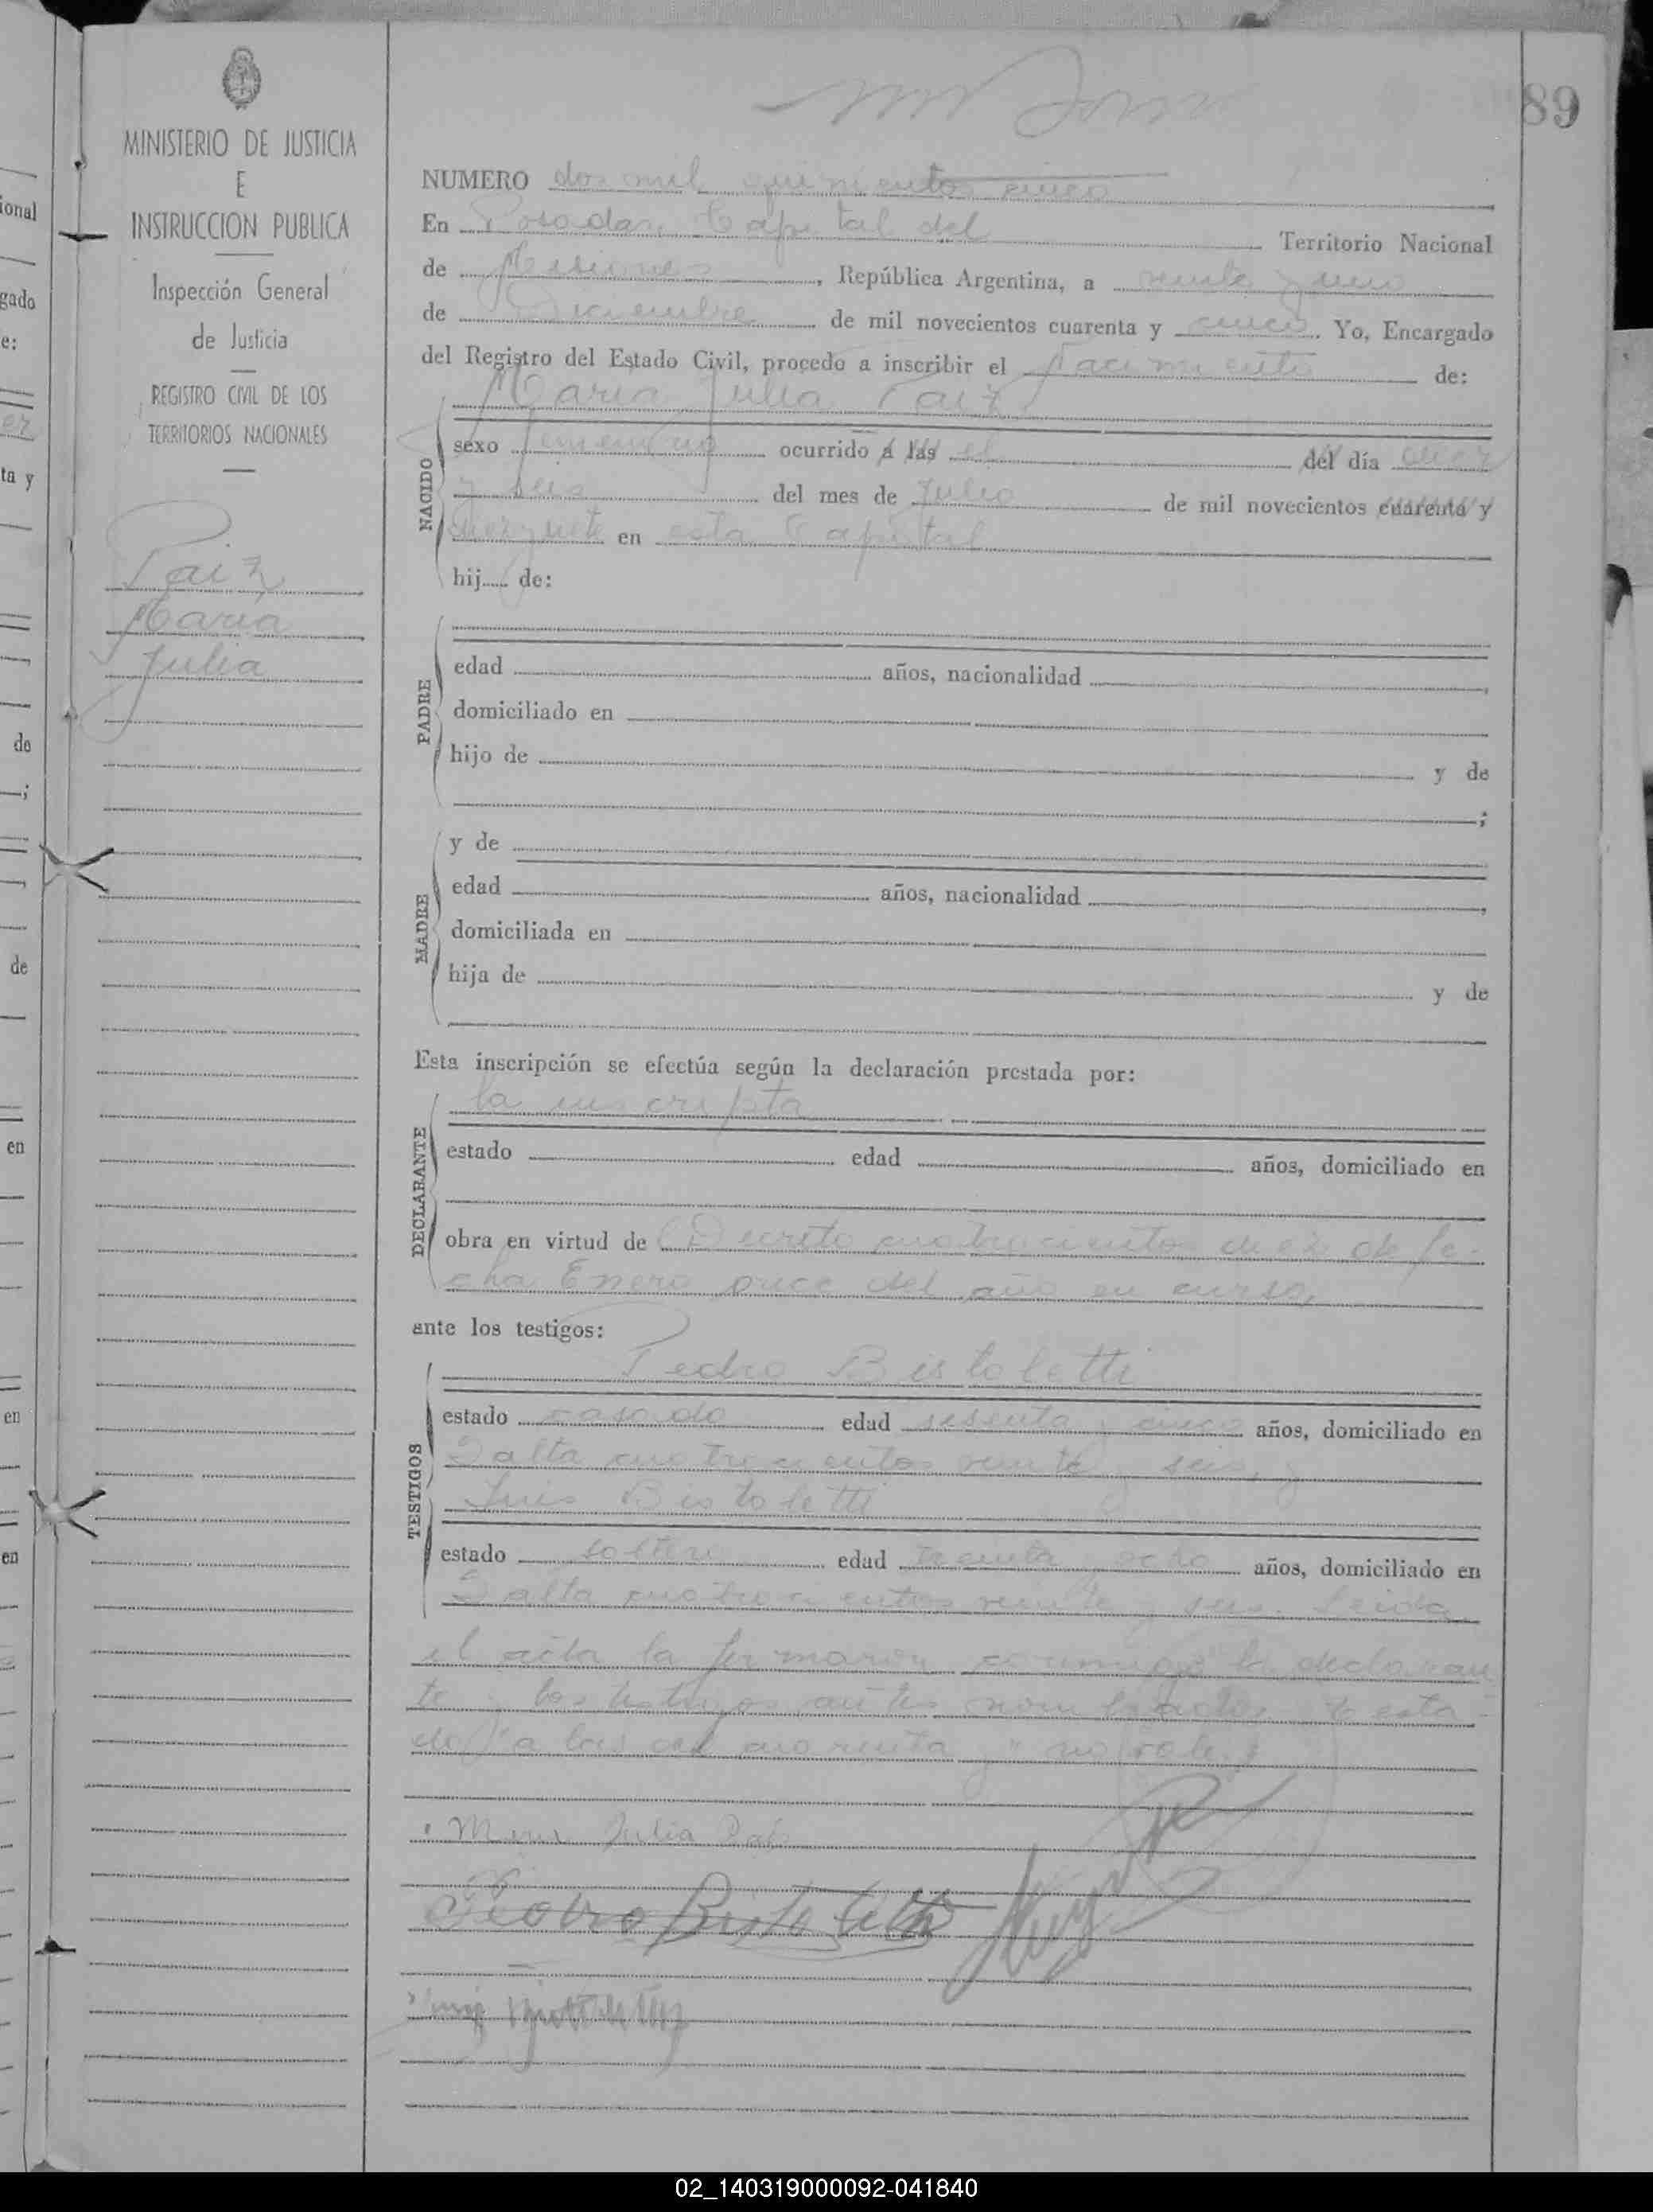 89
MINISTERIO DE JUSTICIA
E
INSTRUCCION PUBLICA
Inspección General
de Justicia
REGISTRO CIVIL DE LOS
TERRITORIOS NACIONALES
Paiz
María
Julia
NUMERO dos mil quinientos cinco
En Posadas, Capital del Territorio Nacional
de Misiones, República Argentina, a veinte y uno
de Diciembre de mil novecientos cuarenta y cinco. Yo, Encargado
del Registro del Estado Civil, procedo a inscribir el Nacimiento de:
María Julia Paiz
NACIDO
sexo femenino ocurrido á las el del día diez
y seis del mes de Julio de mil novecientos cuarenta y
diez y siete en esta Capital
hij de:
PADRE
edad años, nacionalidad ,
domiciliado en
hijo de y de
;
MADRE
y de
edad años, nacionalidad ,
domiciliada en
hija de y de
Esta inscripción se efectúa según la declaración prestada por:
DECLARANTE
la inscripta
estado edad años, domiciliado en
obra en virtud de Decreto cuatrocientos diez de fe-
cha Enero once del año en curso,
ante los testigos:
TESTIGOS
Pedro Bistoletti
estado casado edad sesenta y cinco años, domiciliado en
Salta cuatrocientos veinte y seis, y
Luis Bistoletti
estado soltero edad treinta y ocho años, domiciliado en
Salta cuatrocientos veinte y seis. Leida
el acta la firmaron conmigo la declaran
te y los testigos antes nombrados. Testa-
do: a las del cuarenta y no vale.
Maria Julia Paiz
Pedro Bistoletti
Luis Bistoletti
ional
gado
e:
ez
ta y
do
de
en
en
en
02_140319000092-041840